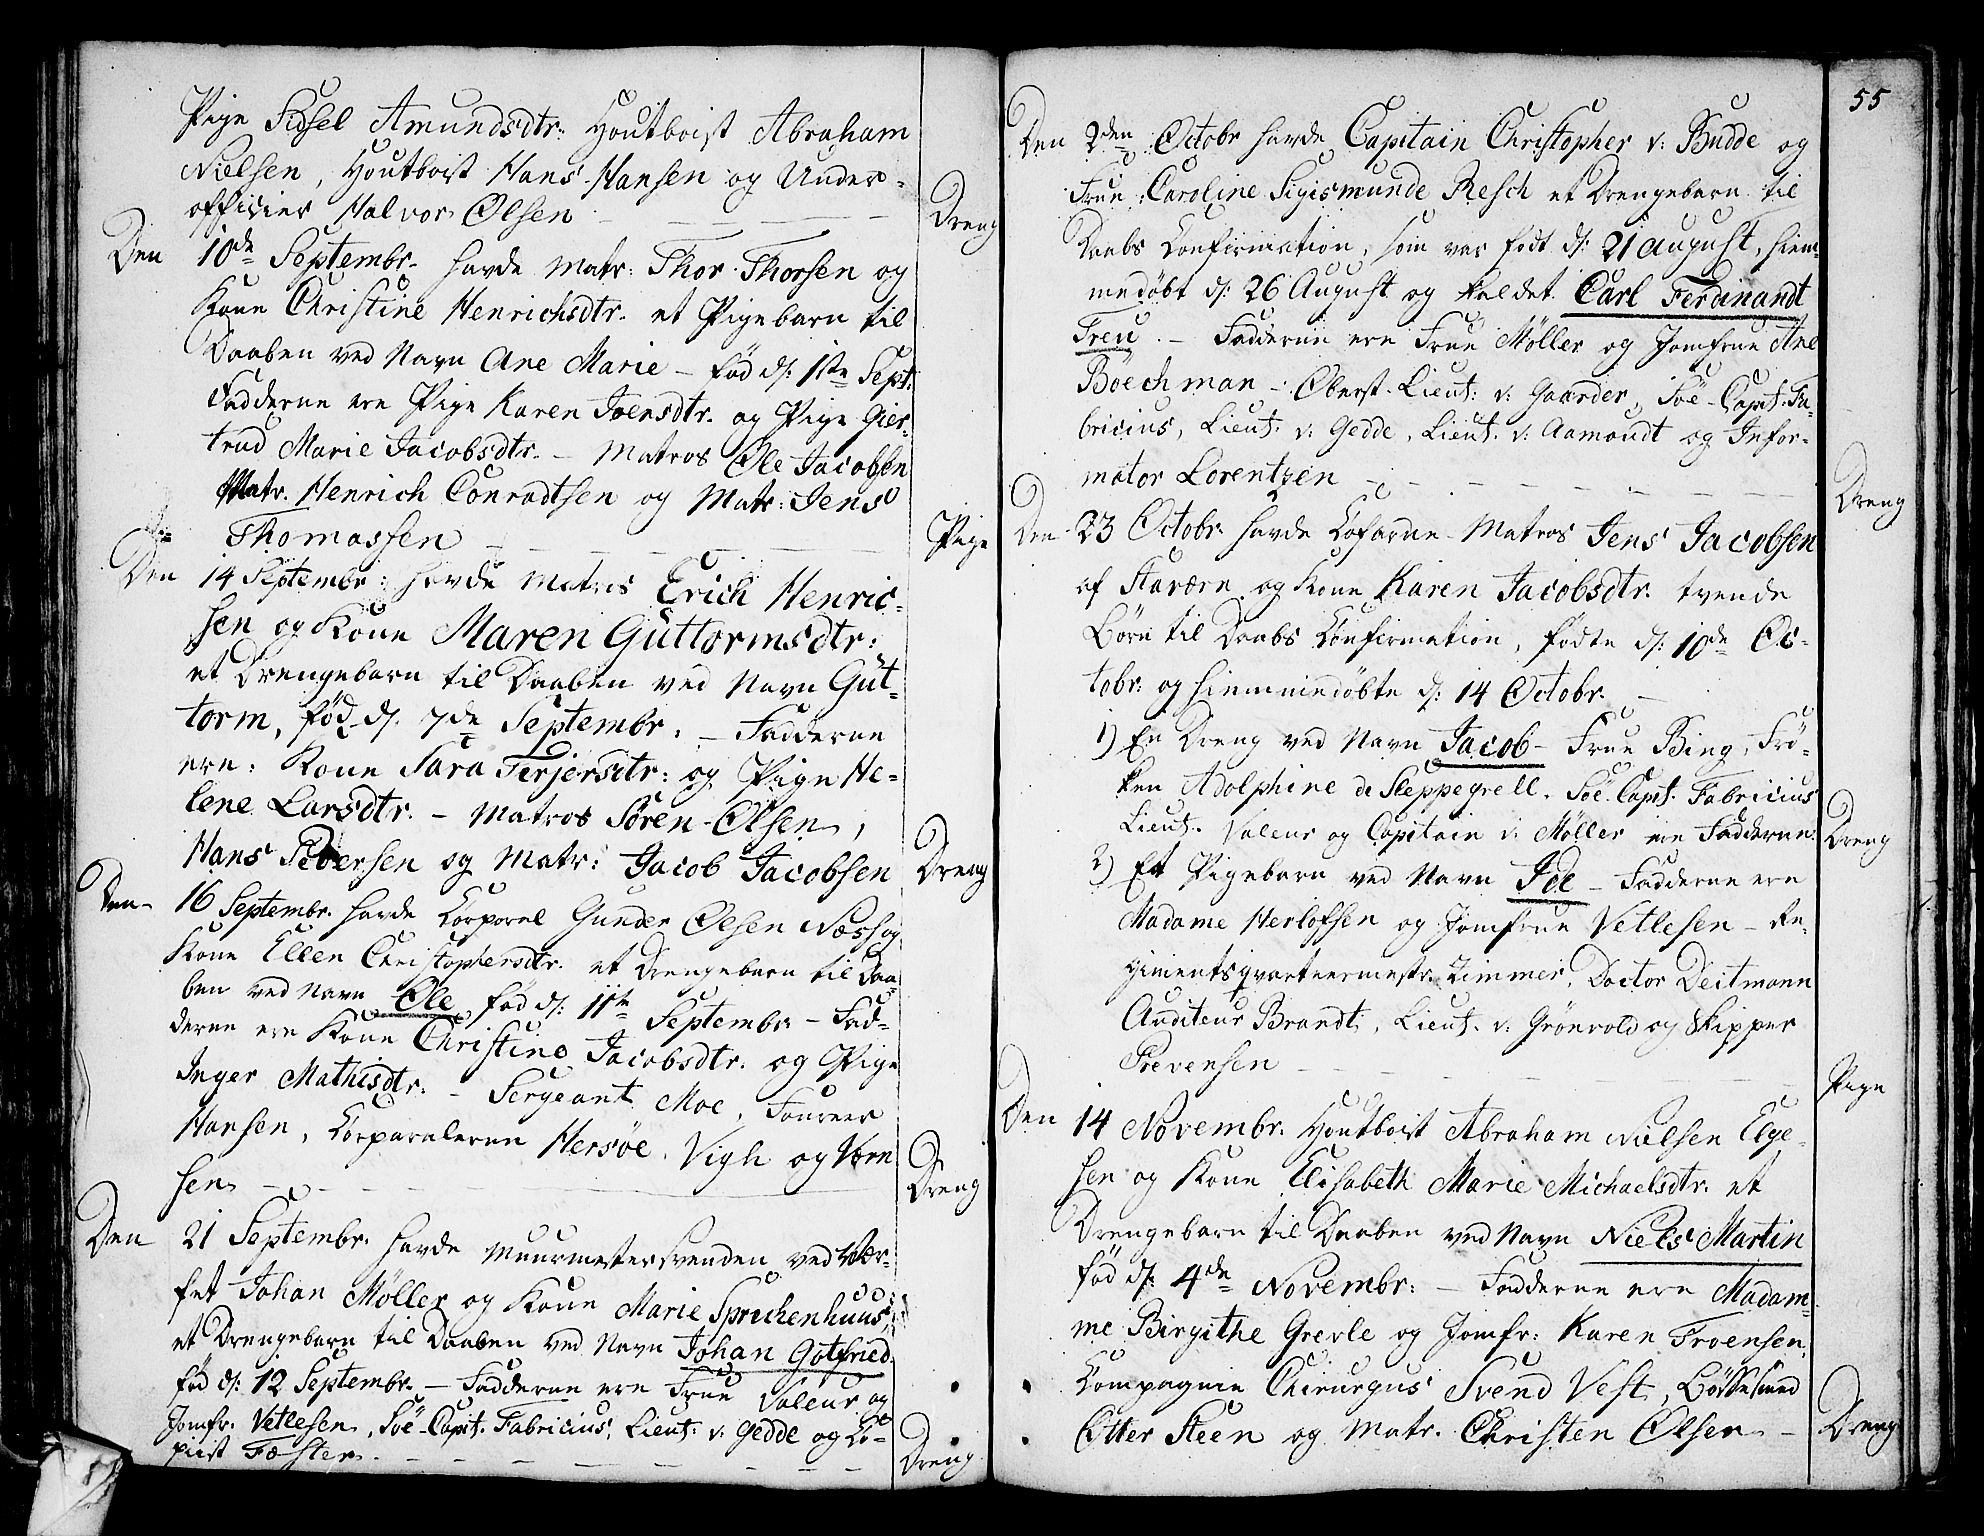 Pige Sidsel Amundsdtr: Houtboist Abraham
Nielsen, Houtboist Hans Hansen og Under-
officier Halvor Olsen — Dreng
Den 10de Septembr. havde Matr: Thor Thorsen og
Kone Christine Henrichsdtr. et Pigebarn til
Daaben ved Navn Ane Marie – fød d: 1ste Sept:
Fadderne ere Pige Karen Joensdtr. og Pige Gier-
trud Marie Jacobsdtr. – Matros Ole Jacobsen
Matr. Henrich Conradtsen og Matr: Jens
Thomassen — Pige
Den 14 Septembr: havde Matros Erich Henric-
sen og Kone Maren Guttormsdtr:
et Drengebarn til Daaben ved Navn Gut-
torm, fød d. 7de Septembr. – Fadderne
ere: Kone Sara Terjersdtr: og Pige He-
lene Larsdtr. – Matros Sören Olsen,
Hans Pedersen og Matr: Jacob Jacobsen Dreng
Den 16 Septembr. havde Corporal Gunder Olsen Næss og
Kone Ellen Christophersdtr. et Drengebarn til Daa-
ben ved Navn Ole fød d: 11te Septembr – Fad-
derne ere Kone Christine Jacobsdtr. og Pige
Inger Mathisdtr. – Sergeant Moe, Foureer
Hansen, Corporalerne Hersöe, Vigh og Vern
sen — Dreng
Den 21 Septembr. havde Muurmestersvenden ved Vær-
fet Johan Möller og Kone Marie Sprechenhuus
et Drengebarn til Daaben ved Navn Johan Gotfried
fød d: 12 Septembr. – Fadderne ere Frue Valeur og
Jomfr. Vetlesen, Söe-Capt. Fabricius, Lieut: v: Gedde og Co-
piist Fæster. — Dreng
55
Den 2den Octobr havde Capitain Christopher v: Budde og
Frue Caroline Sigismunde Resch et Drengebarn til
Daabs Confirmation, som var født d: 21 August, hiem-
medöbt d: 26 August og kaldet Carl Ferdinandt
Treu. – Fadderne ere Frue Möller og Jomfrue Ane
Böechman – Oberst-Lieut: v: Gaarder, Söe-Capt. Fa-
bricius, Lieut. v: Gedde, Lieut. v: Aamoudt og Infor-
mator Lorentzen — Dreng
Den 23 Octobr. havde Cofardie-Matros Jens Jacobsen
af Staværn og Kone Karen Jacobsdtr. tvende
Börn til Daabs Confirmation, födte d: 10de Oc-
tobr: og hiemmedöbte d: 14 Octobr. –
1) En Dreng ved Navn Jacob – Frue Bing, Frö-
ken Adolphine de Sleppegrell, Söe-Capt. Fabricius
Lieut. Valeur og Capitain v: Möller ere Fadderne. Dreng
2) Et Pigebarn ved Navn Ide – Fadderne ere
Madame Herlofsen og Jomfrue Vetlesen – Re-
gimentsqvarteermestr. Zimmer, Doctor Deitmann
Auditeur Brandt, Lieut. v: Grönvold og Skipper
Prevensen — Pige
Den 14 Novembr. Houtboist Abraham Nielsen Elge-
sen og Kone Elisabeth Marie Michaelsdtr. et
Drengebarn til Daaben ved Navn Niels Martin
fød d: 4de Novembr: – Fadderne ere Madam-
me Birgithe Grevle og Jomfr: Karen Troensen,
Compagnie Chirurgus Svend Vest, Bössesmed
Otter Steen og Matr. Christen Olsen – Dreng